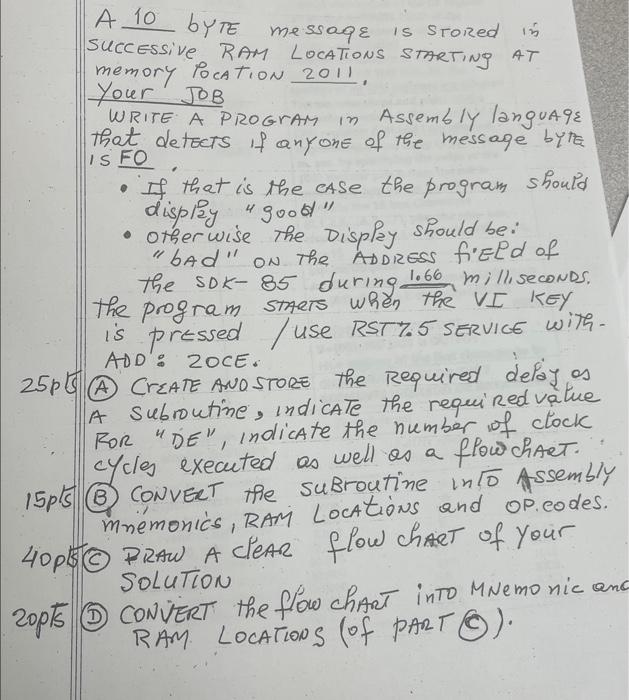 A 10 byTE message is STORED in
SUCCESSIVE RAM LOCATIONS STARTING AT
memory LOCATION 2011.
Your JOB
WRITE A PROGRAM in Assembly language
that detects if anyone of the message byTE
IS FO.
• If that is the CASE the program should
display "good"
• otherwise THE Display should be:
"bAd" ON THE ADDRESS fiELd of
the SDK-85 during 1.66 milliseconds.
The program STARTS when the VI KEY
is pressed / use RST 7.5 SERVICE with-
ADD: 20CE.
25pts (A) CREATE AND STORE the Required delay as
A Subroutine, indicate the required value
FOR "DE", indicate the number of clock
cycles executed as well as a flowchART.
15pts (B) CONVERT the SUBROUTINE INTO Assembly
mnemonics, RAM LOCATIONS and OP.codes.
40pts (C) DRAW A clEAR flow chART of your
SOLUTION
20pts (D) CONVERT the flow chART inTO MNemonic and
RAM LOCATIONS (of PART (C)).